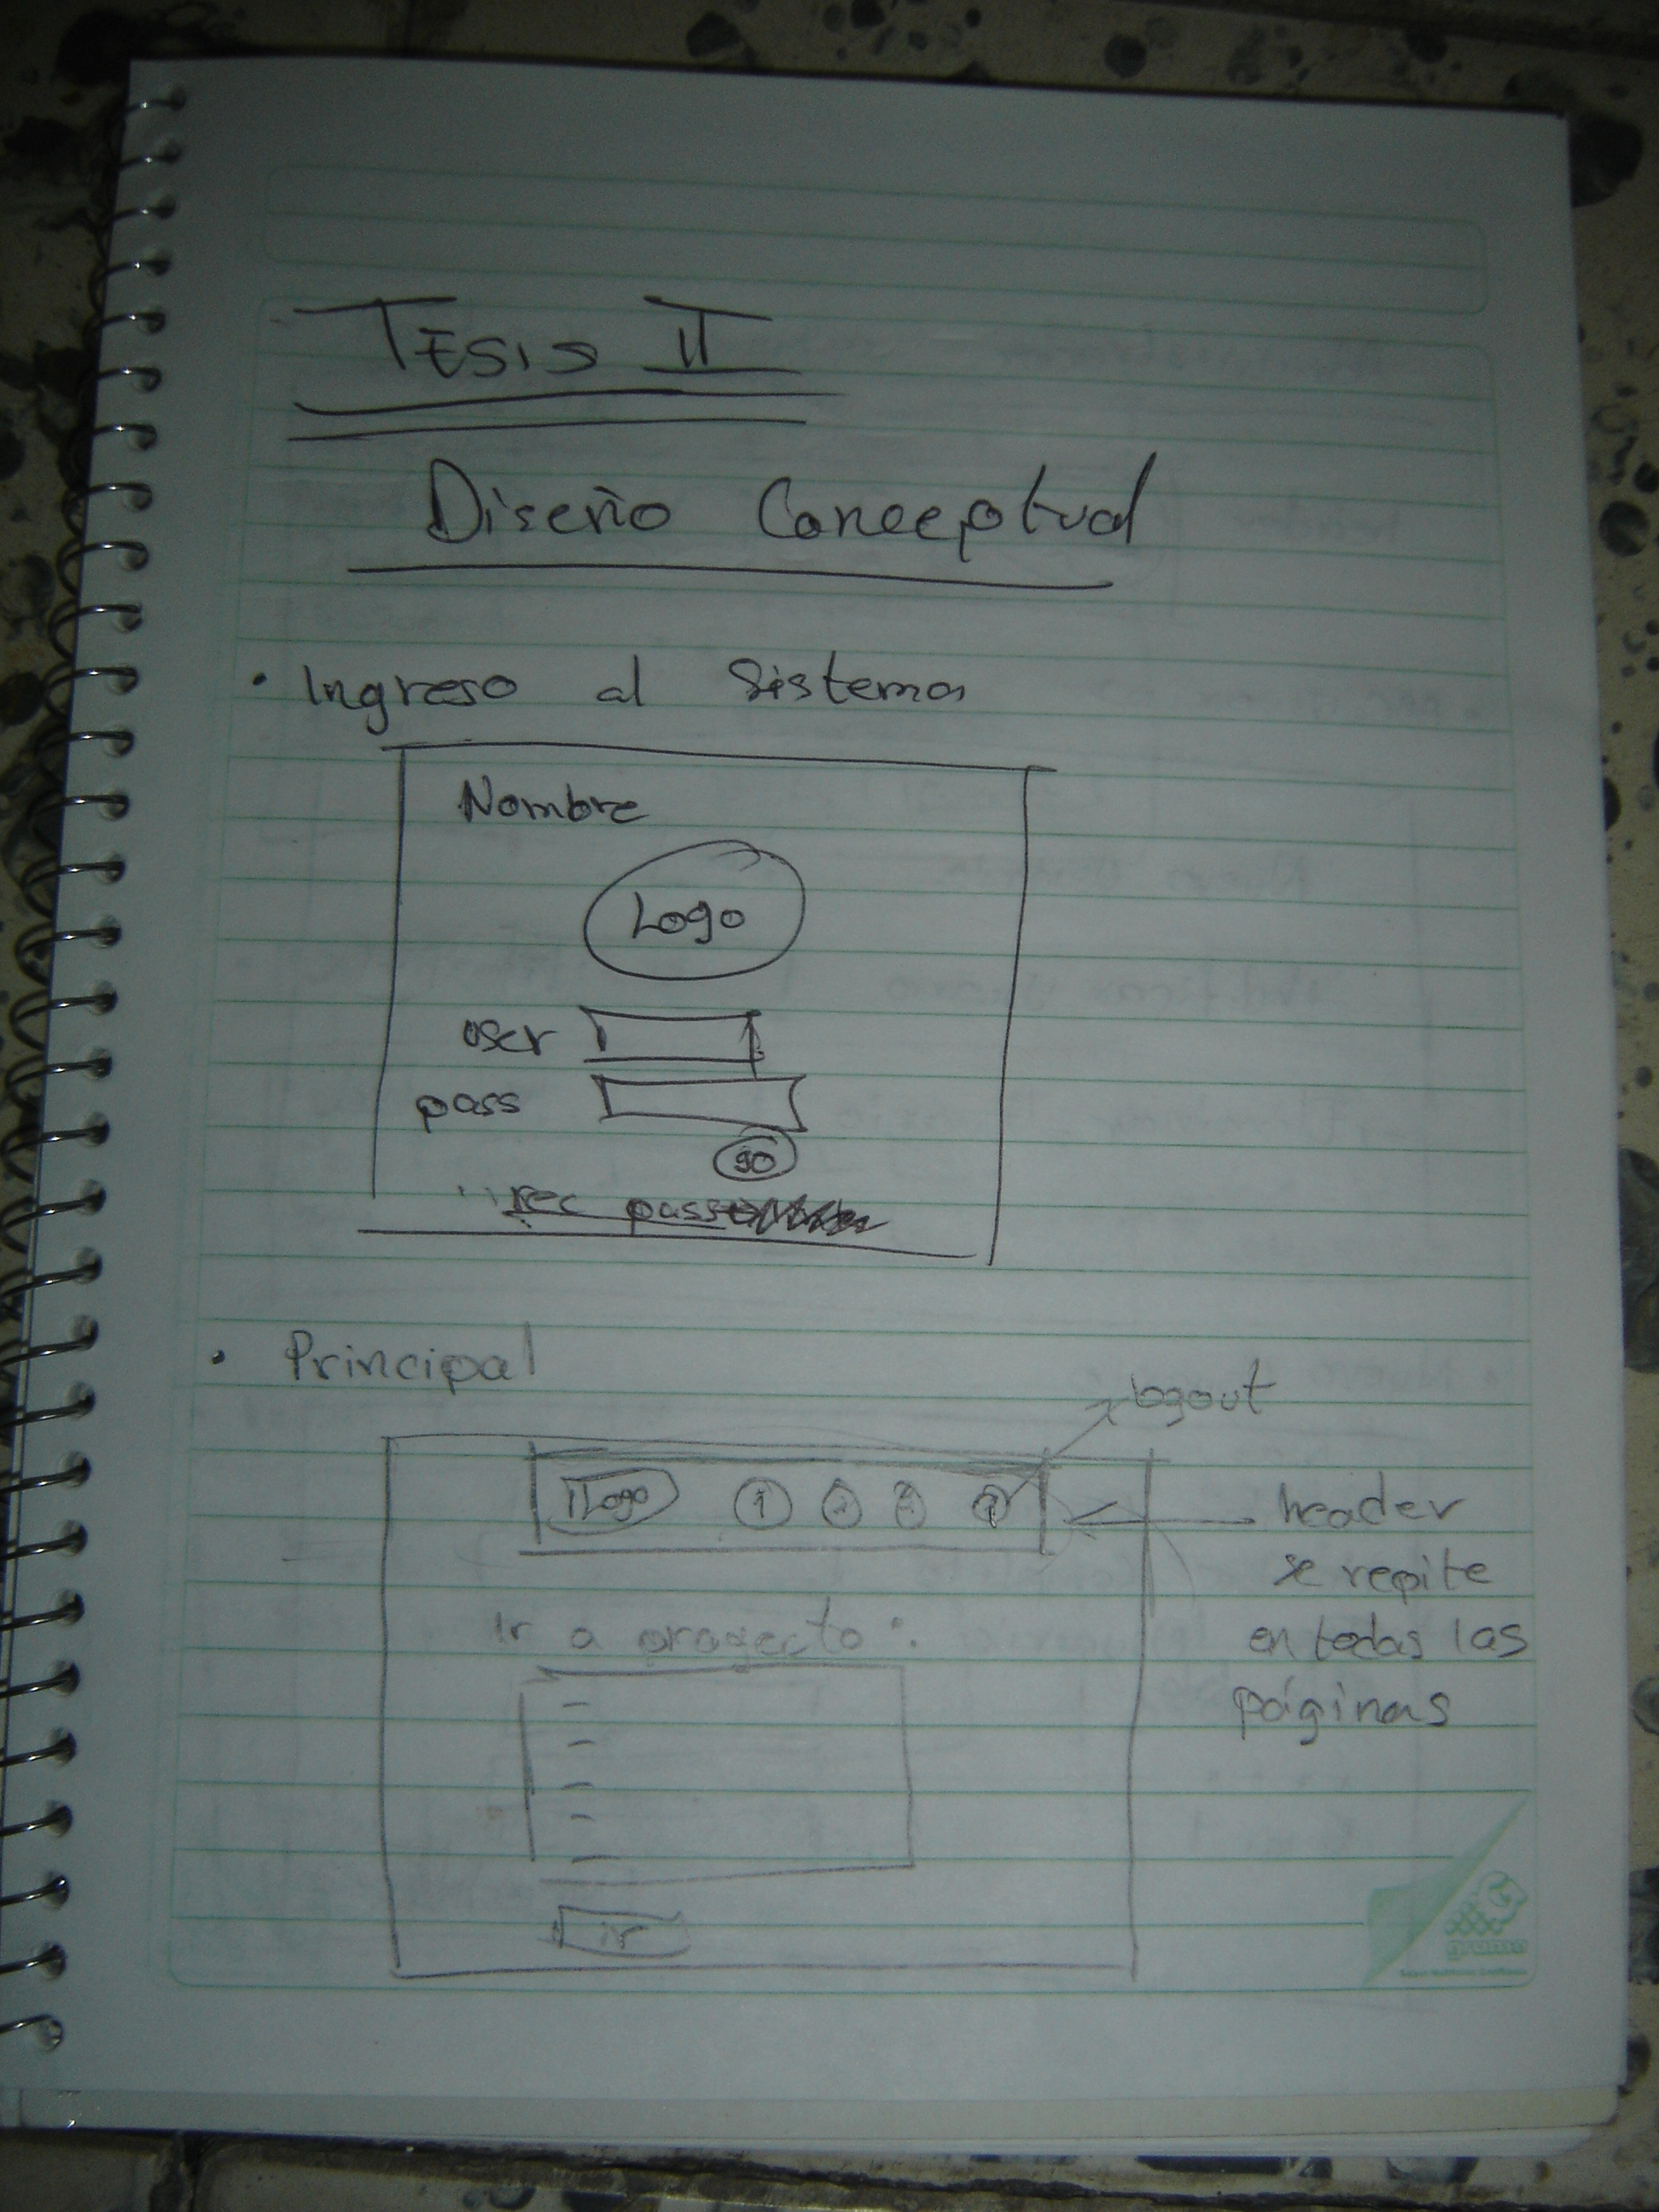 TESIS II
Diseño Conceptual
• Ingreso al Sistema
Nombre
Logo
user
pass
go
rec pass
• Principal
logout
Logo 1 2 3 4
header
se repite
en todas las
páginas
Ir a proyecto:
ir